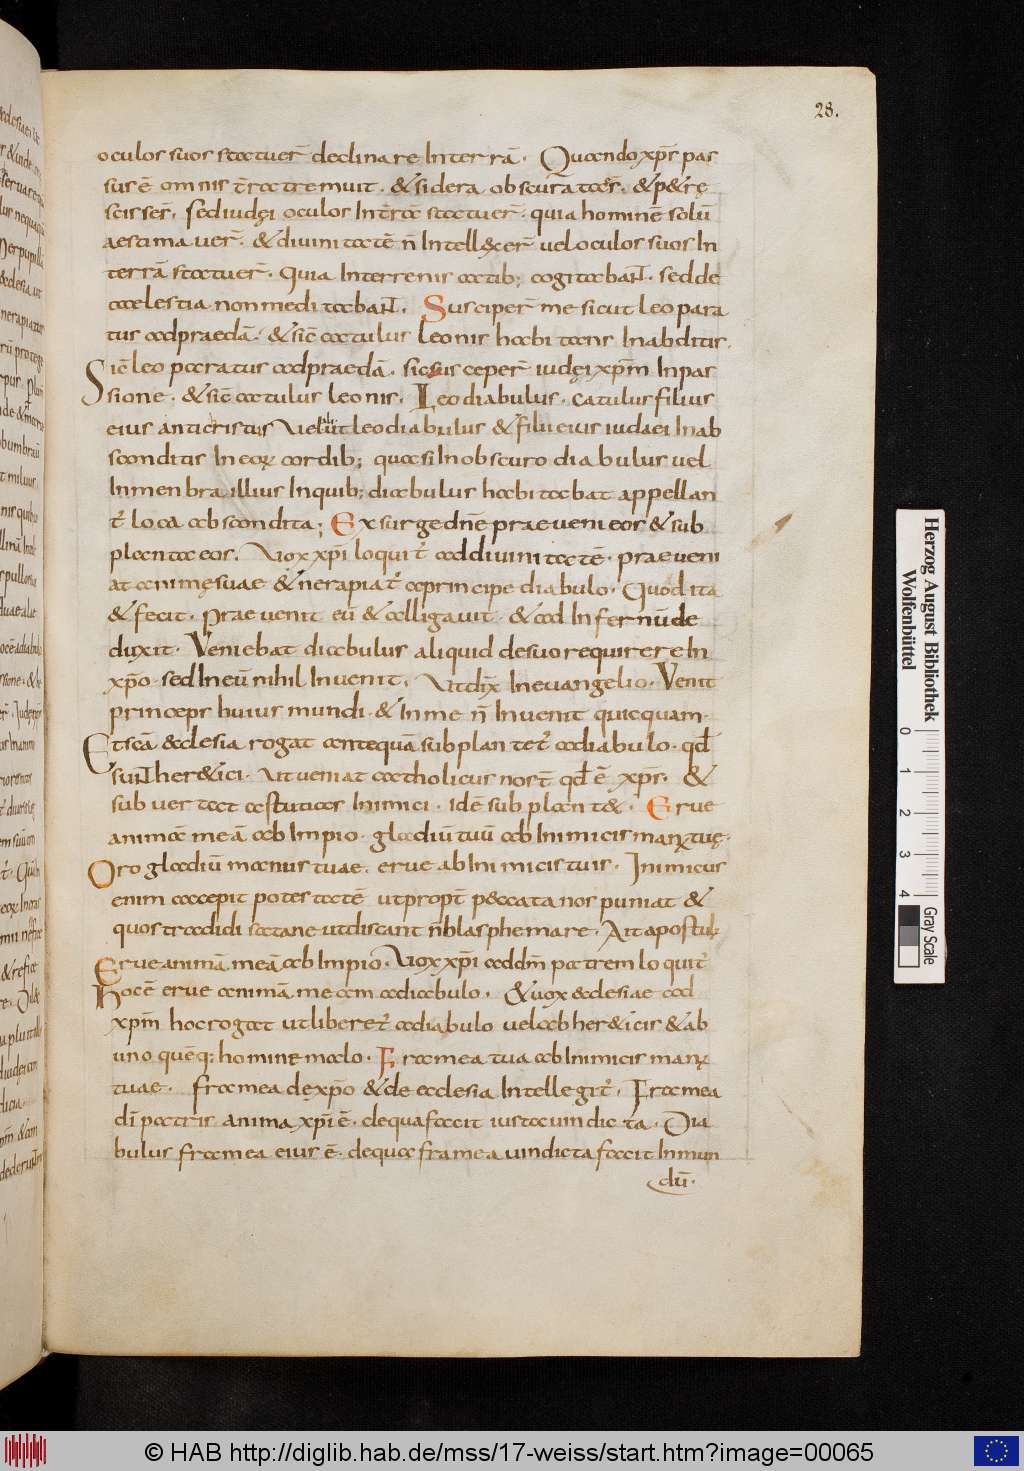 28.
oculos suos statuer̄ declinare In terrā. Quando xp̄s pas
sus ē omnis t̄ra tremuit. & sidera obscurata er̄. & p&rę
scis ser̄. sed iudęi oculos In t̄rā statuer̄. quia hominē solū
aestimauer̄. & diuinitatē n̄ Intellęxer̄ uel oculos suos In
terrā statuer̄. Quia In terrenis actib; cogitabaN̄. sed de
caelestia non meditabaN̄. Susceper̄ me sicut leo para
tus ad praedā. & sic̄ catulus leonis habitans In abditis.
Sic̄ leo paratus ad praedā. sic susceper̄ iudęi xp̄m In pas
sione. & sic̄ catulus leonis. Leo diabulus. catulus filius
eius anticristus Uelut leo diabulus & filii eius iudaei In ab
sconditis In eoꝝ cordib; quasi In obscuro diabulus uel
In menbra illius In quib; diabulus habitabat appellan
t᷑ loca abscondita; Exsurge dn̄e praeueni eos & sub
planta eos. Uox xp̄i loquit᷑ ad diuinitatē. praeueni
at animę suae & ne rapiat᷑ a principe diabulo. Quod ita
& fecit. Praeuenit eū & alligauit. & ad Infernū de
duxit. Veniebat diabulus aliquid de suo requirere In
xp̄o. sed In eū nihil Inuenit. Ut dix̄ In euangelio. Venit
princeps huius mundi. & In me n̄ Inuenit quicquam.
Et sc̄a &clesia rogat antequā subplantet᷑ a diabulo. qd̄
suN̄ her&ici. Ut ueniat catholicus nost̄. qd̄ ē xp̄s. &
subuertat astutias Inimici. idē subplant&. Erue
animā meā ab Impio. gladiū tuū ab Inimicis manꝝ tuę.
Oro gladiū manus tuae. erue ab Inimicis tuis. Inimicus
enim accepit potestatē ut propt̄ p&cata nos puniat &
quos tradidi satane ut discant n̄ blasphemare. Ait apostul;
Erue animā meā ab Impio. Uox xp̄i ad dm̄ patrem loquit᷑
Hoc ē erue animā meam a diabulo. & uox &clesiae ad
xp̄m hoc rogat ut liberet᷑ a diabulo uel ab her&icis & ab
uno quēq; homine malo. Framea tua ab Inimicis manꝝ
tuae. framea de xp̄o & de ecclesia Intellegit᷑. Framea
dī patris anima xp̄i ē. de qua faccit iusta uindicta. Dia
bulus framea eius ē. de qua framea uindicta faccit In mun
dū.
Herzog August Bibliothek
Wolfenbüttel
0 1 2 3 4
Gray Scale
© HAB http://diglib.hab.de/mss/17-weiss/start.htm?image=00065